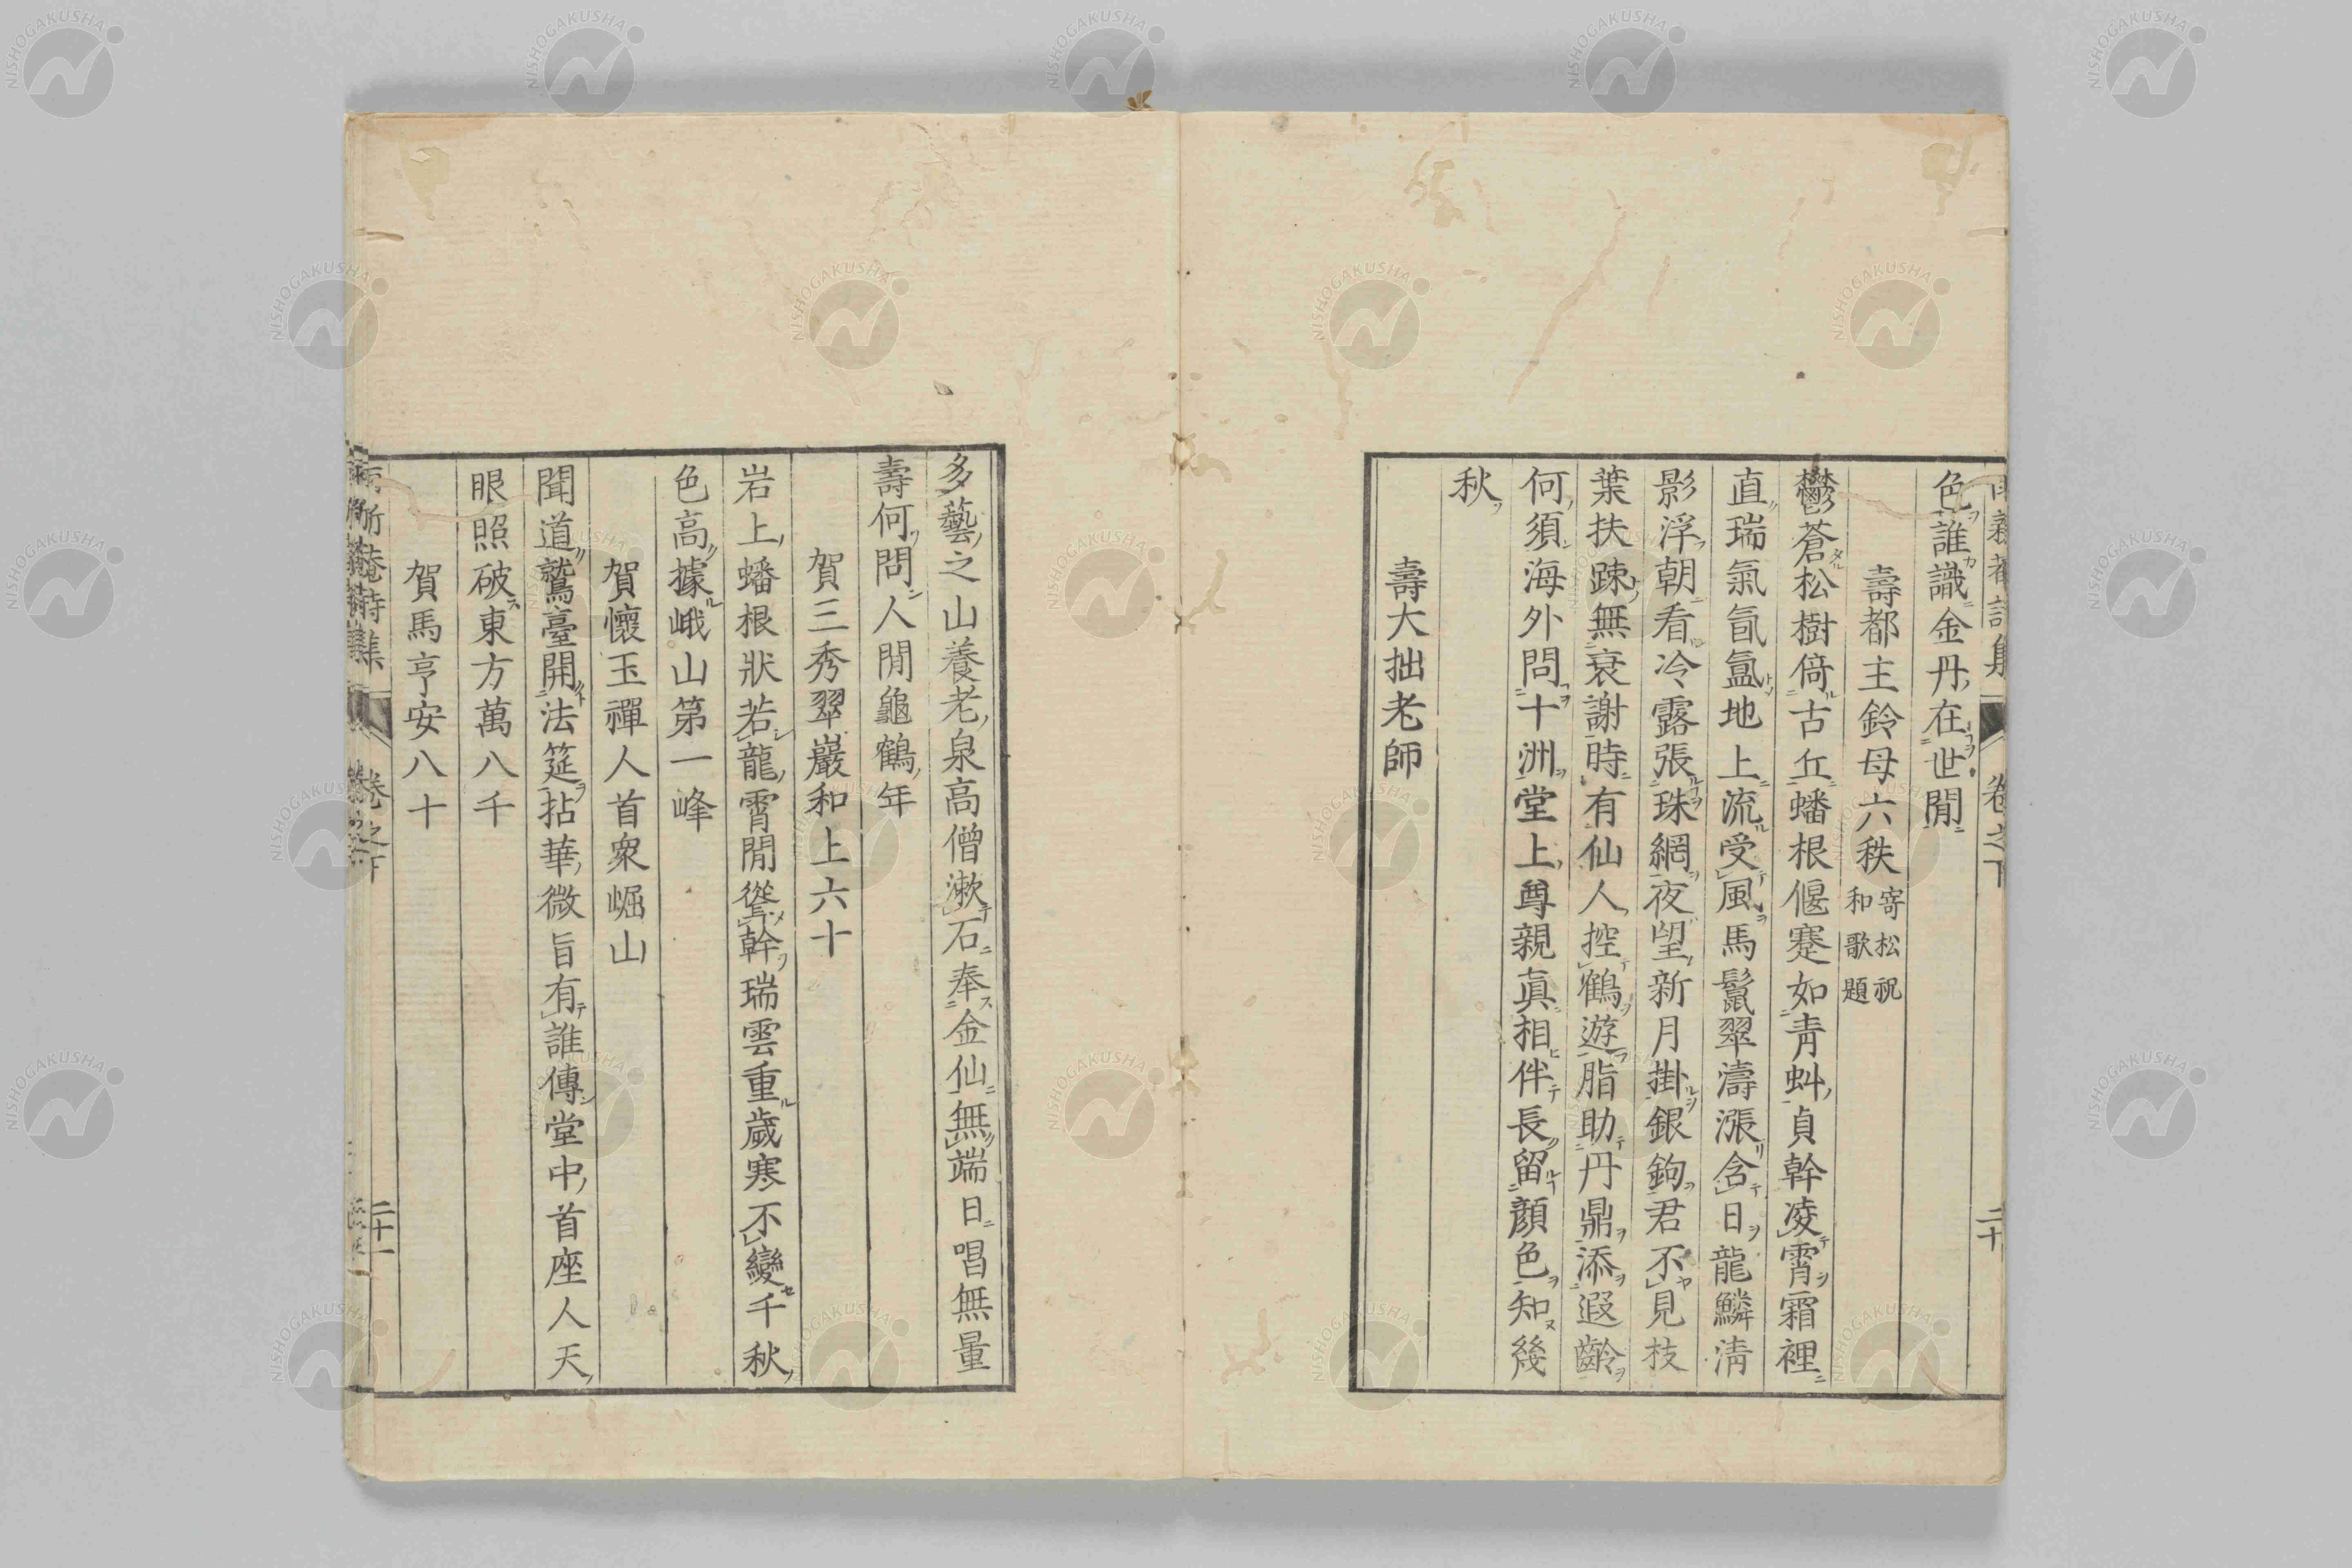 色誰識金丹在世間
壽都主鈴母六秩 寄松祝和歌題
鬱蒼松樹倚古丘蟠根偃蹇如青虯貞幹凌霄霜裡
直瑞氣氤氳地上流受風馬鬣翠濤漲含日龍鱗淸
影浮朝看冷露張珠網夜望新月掛銀鉤君不見枝
葉扶踈無衰謝時有仙人控鶴遊脂助丹鼎添遐齡
何須海外問十洲堂上尊親眞相伴長留顏色知幾
秋
壽大拙老師
多藝之山養老泉高僧漱石奉金仙無端日唱無量
壽何問人間龜鶴年
賀三秀翠巖和上六十
岩上蟠根狀若龍霄間聳幹瑞雲重歲寒不變千秋
色高據峨山第一峰
賀懷玉禪人首衆崛山
聞道鷲臺開法筵拈華微旨有誰傳堂中首座人天
眼照破東方萬八千
賀馬亨安八十
卷之下
二十
卷之下
二十一
NISHOGAKUSHA